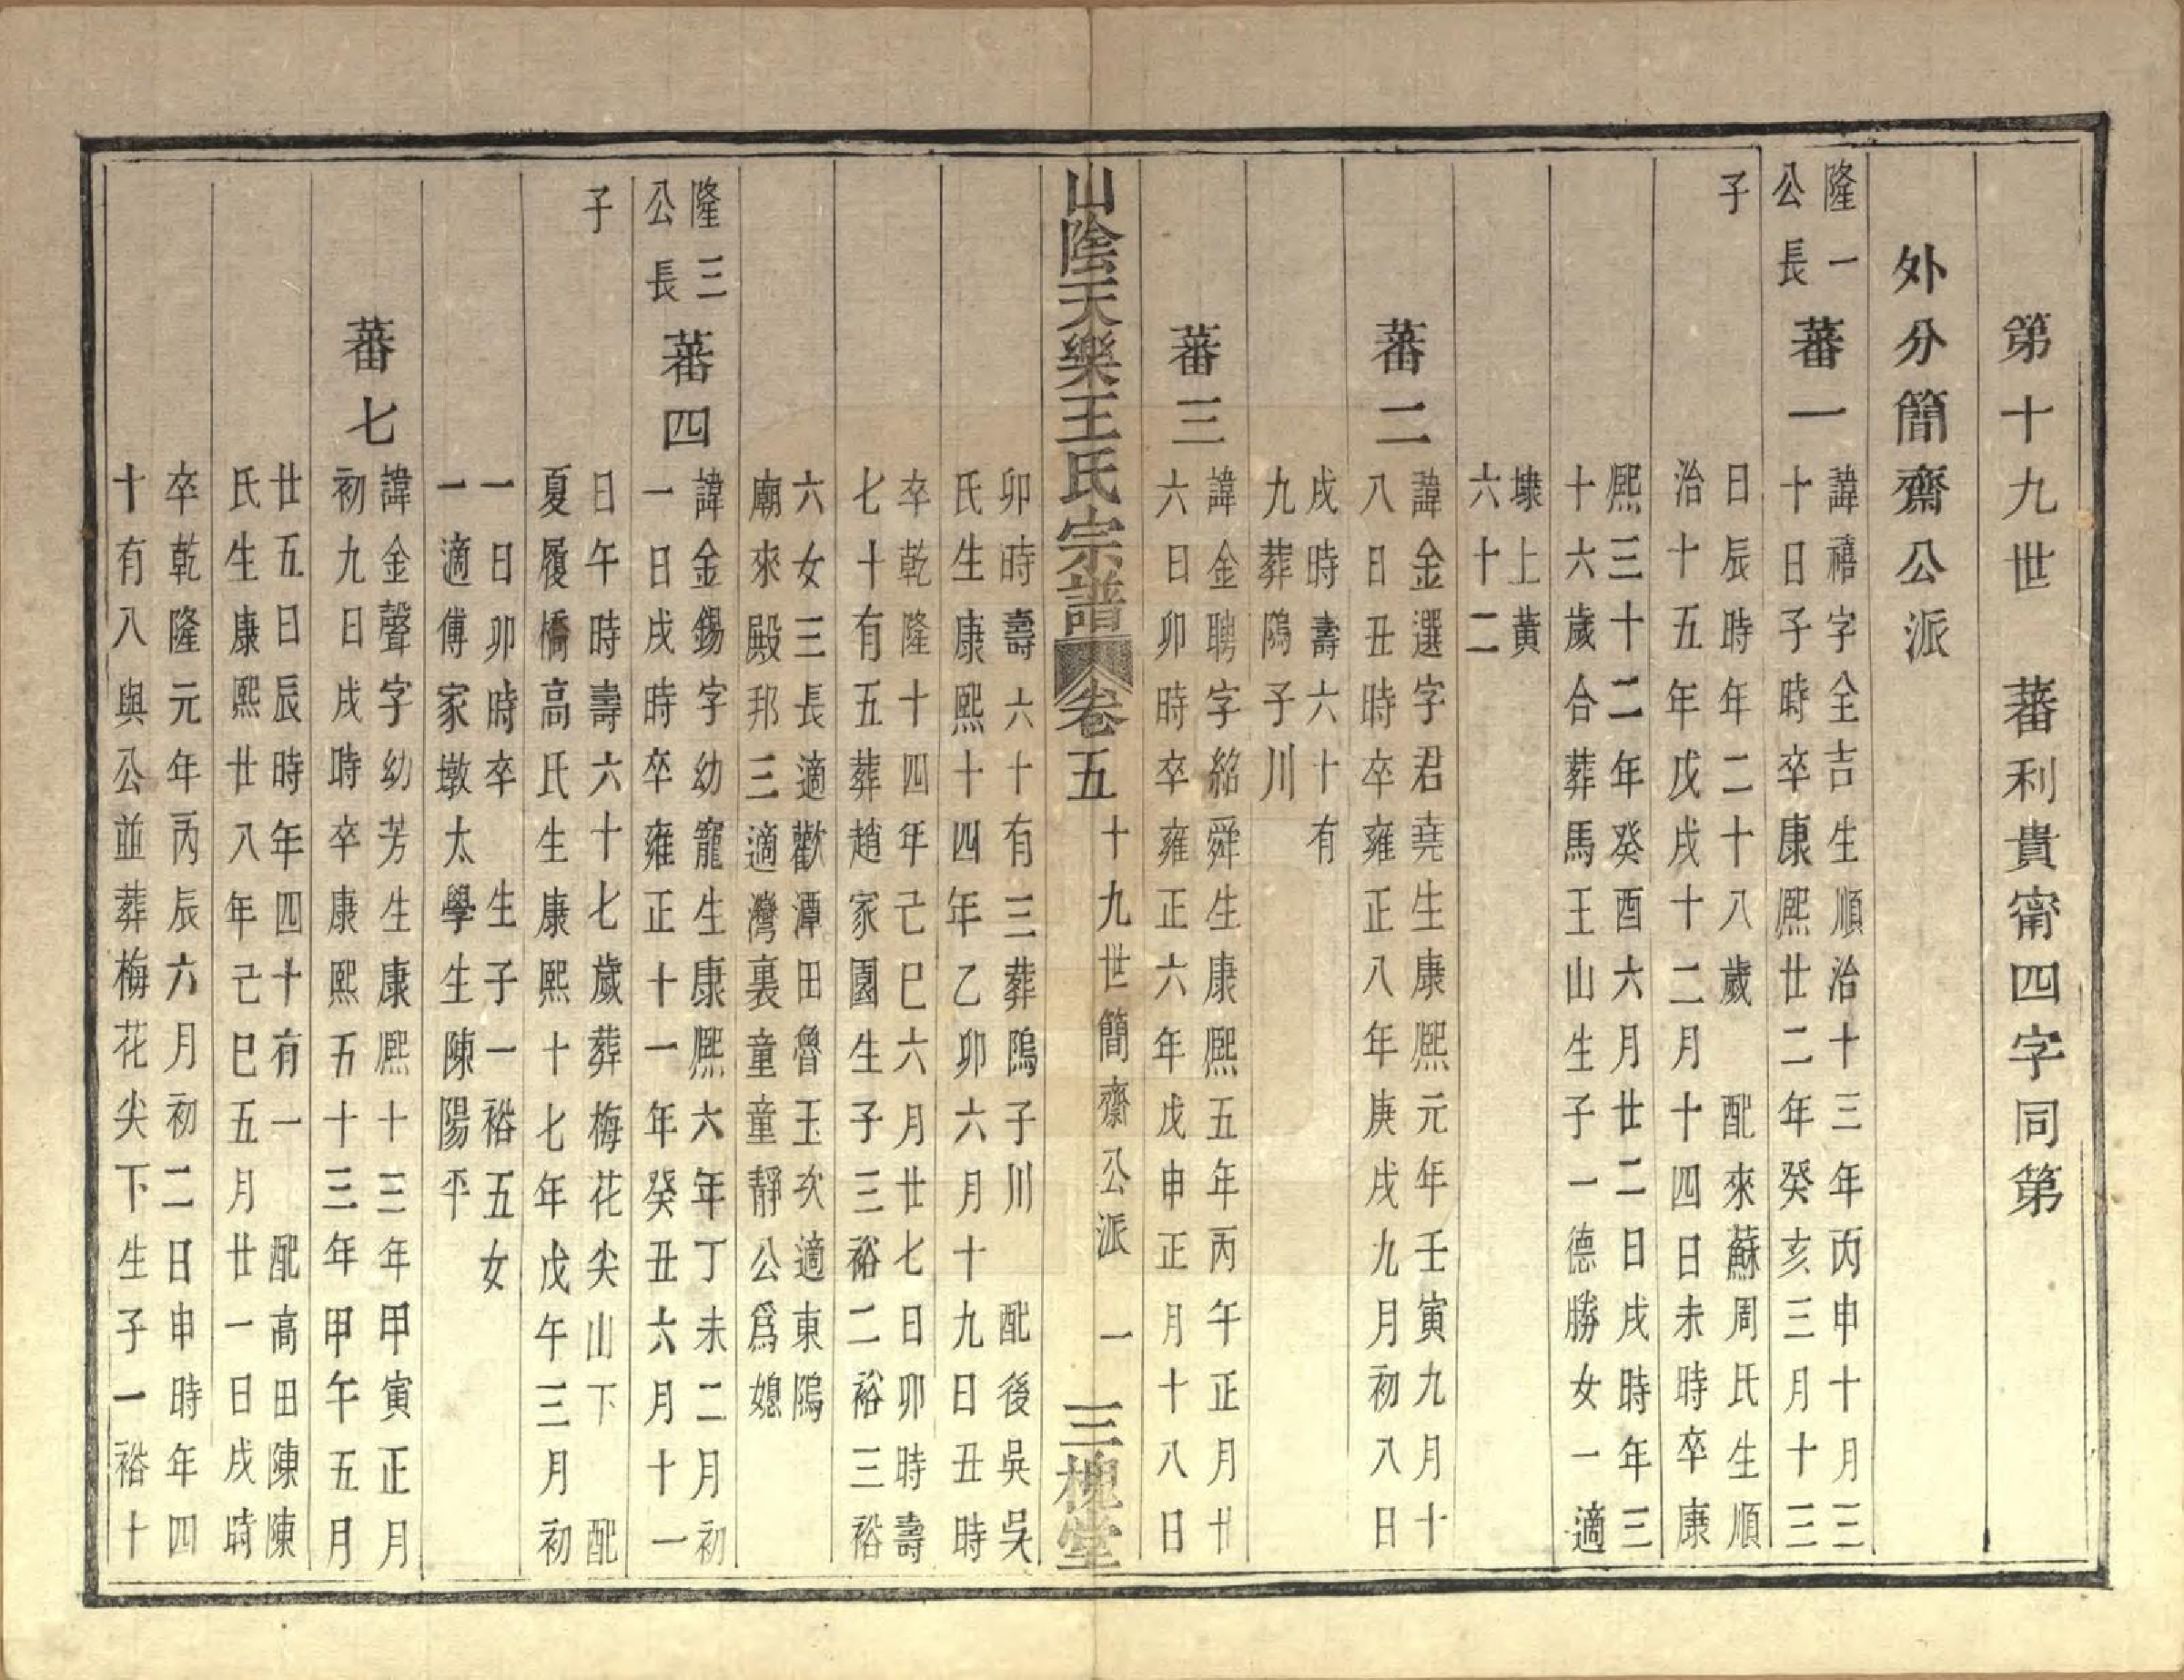 第十九世　蕃利貴甯四字同第
外分簡齋公派
隆一
公長
子
蕃一
諱禧字全吉生順治十三年丙申十月三
十日子時卒康熙廿二年癸亥三月十三
日辰時年二十八歲　配來蘇周氏生順
治十五年戊戌十二月十四日未時卒康
熙三十二年癸酉六月廿二日戌時年三
十六歲合葬馬王山生子一德勝女一適
埭上黃
六十二
蕃二
諱金選字君堯生康熙元年壬寅九月十
八日丑時卒雍正八年庚戌九月初八日
戌時壽六十有
九葬隖子川
蕃三
諱金聘字紹舜生康熙五年丙午正月廿
六日卯時卒雍正六年戊申正月十八日
山陰天樂王氏宗譜　卷五　十九世簡齋公派　一　三槐堂
卯時壽六十有三葬隖子川　配後吳吳
氏生康熙十四年乙卯六月十九日丑時
卒乾隆十四年己巳六月廿七日卯時壽
七十有五葬趙家園生子三裕二裕三裕
六女三長適歡潭田魯玉次適東隖
廟來殿邦三適灣裏童童靜公爲媳
隆三
公長
子
蕃四
諱金錫字幼寵生康熙六年丁未二月初
一日戌時卒雍正十一年癸丑六月十一
日午時壽六十七歲葬梅花尖山下　配
夏履橋高氏生康熙十七年戊午三月初
一日卯時卒　生子一裕五女
一適傅家墩太學生陳陽平
蕃七
諱金聲字幼芳生康熙十三年甲寅正月
初九日戌時卒康熙五十三年甲午五月
廿五日辰時年四十有一　配高田陳陳
氏生康熙廿八年己巳五月廿一日戌時
卒乾隆元年丙辰六月初二日申時年四
十有八與公並葬梅花尖下生子一裕十